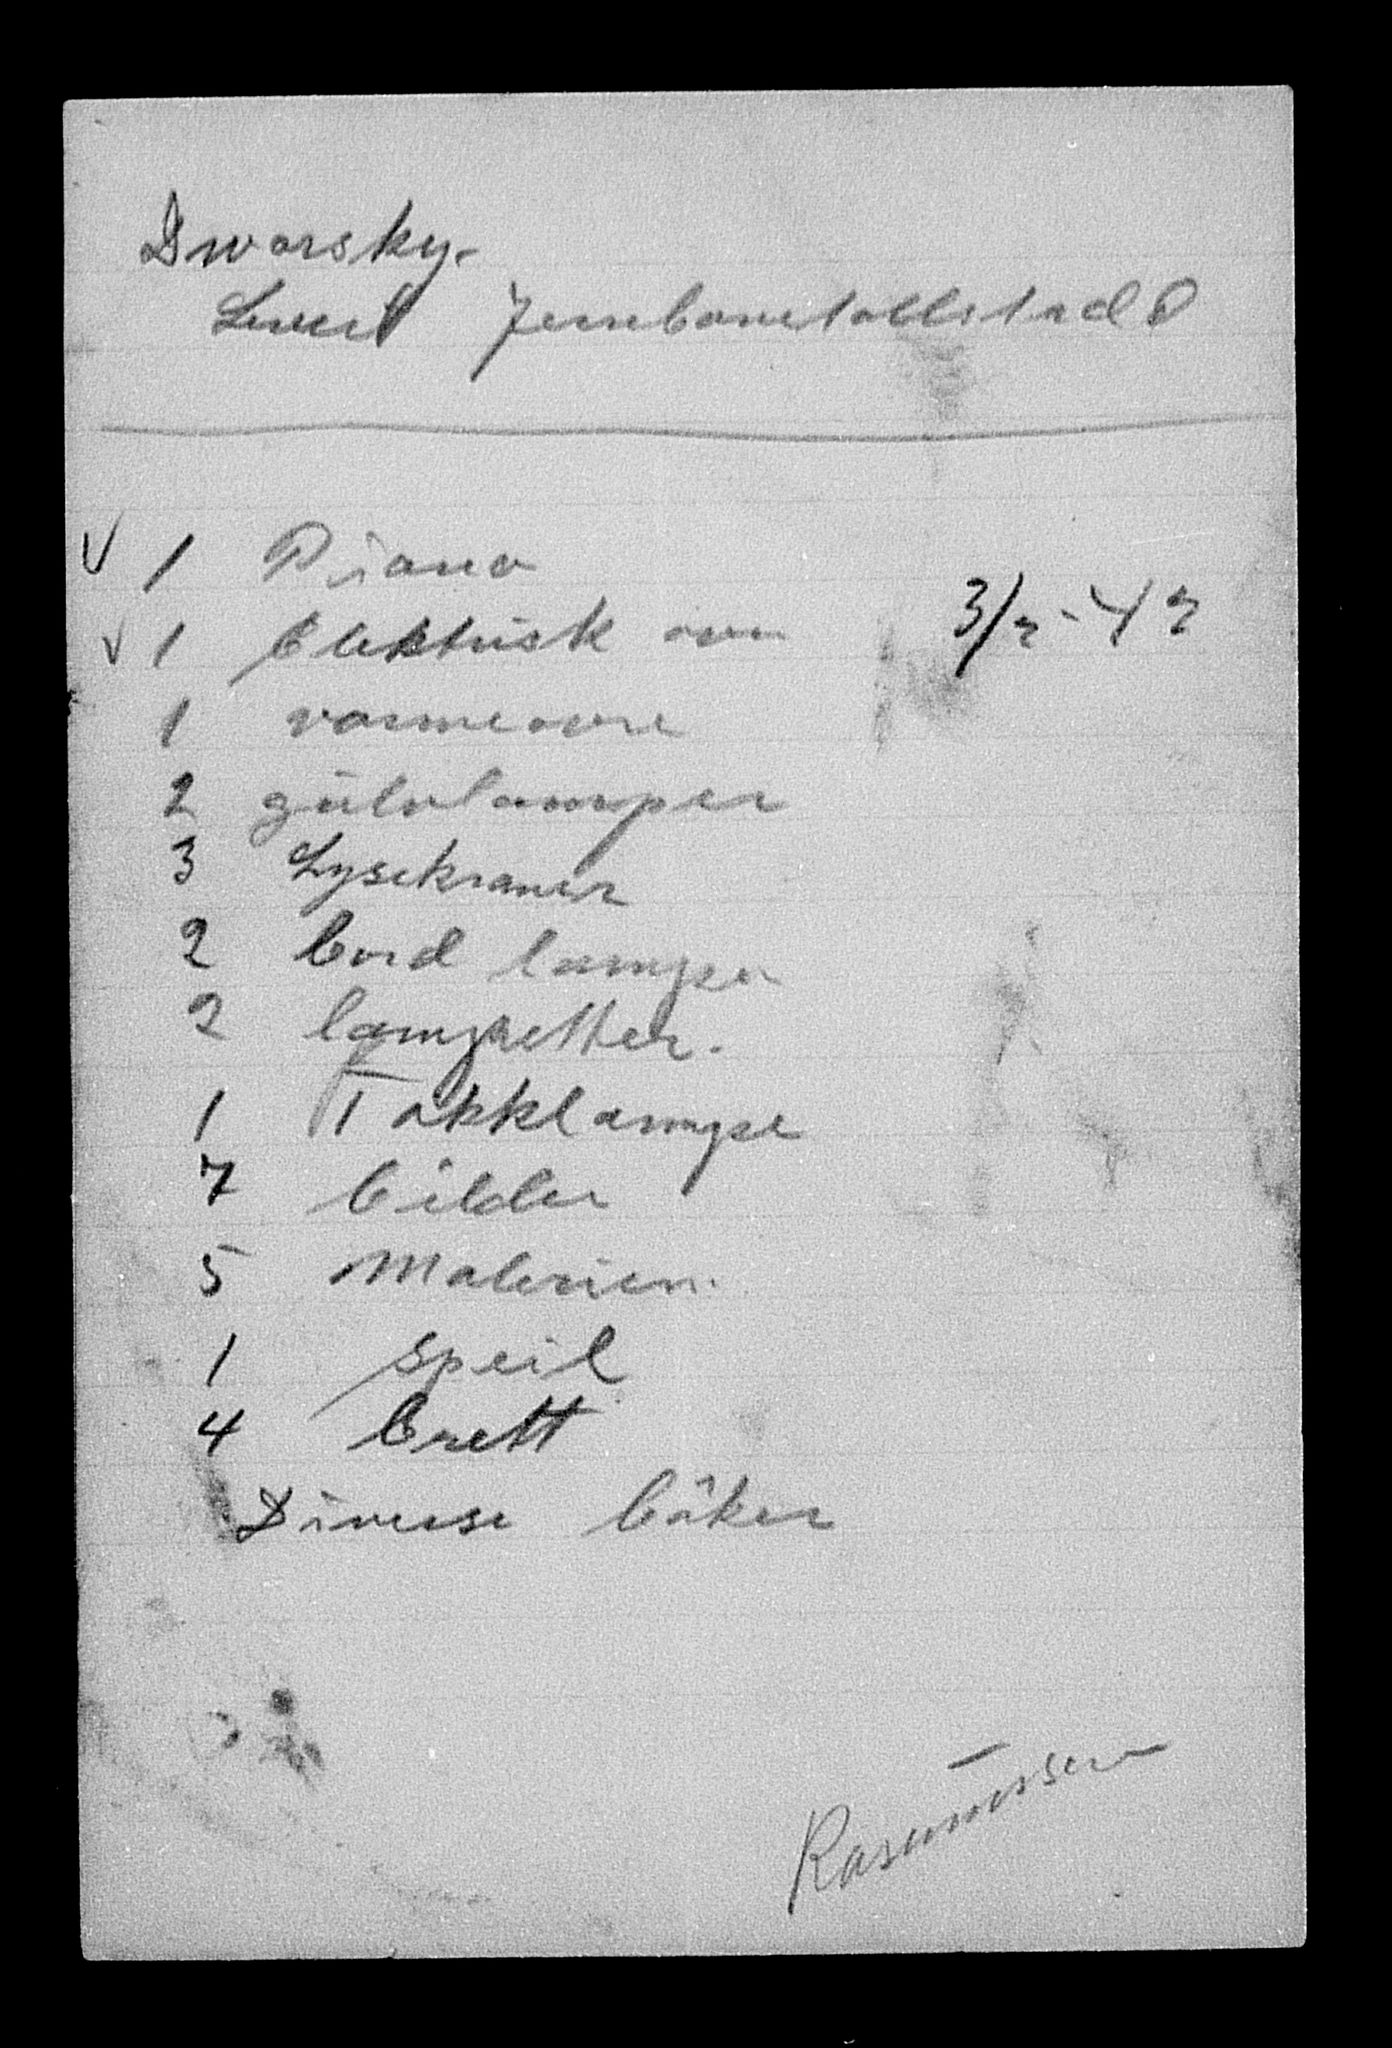 Dworsky.
Levert Jernbanetollsted Ø
V 1 Piano
V 1 Elektrisk ovn 3/2-42
1 varmeovn
2 gülvlamper
3 Lysekraner
2 bord lamper
2 lampetter.
1 Takklampe
7 bilder
5 Malerier.
1 speil
4 brett
Diverse bøker
Rasmussen